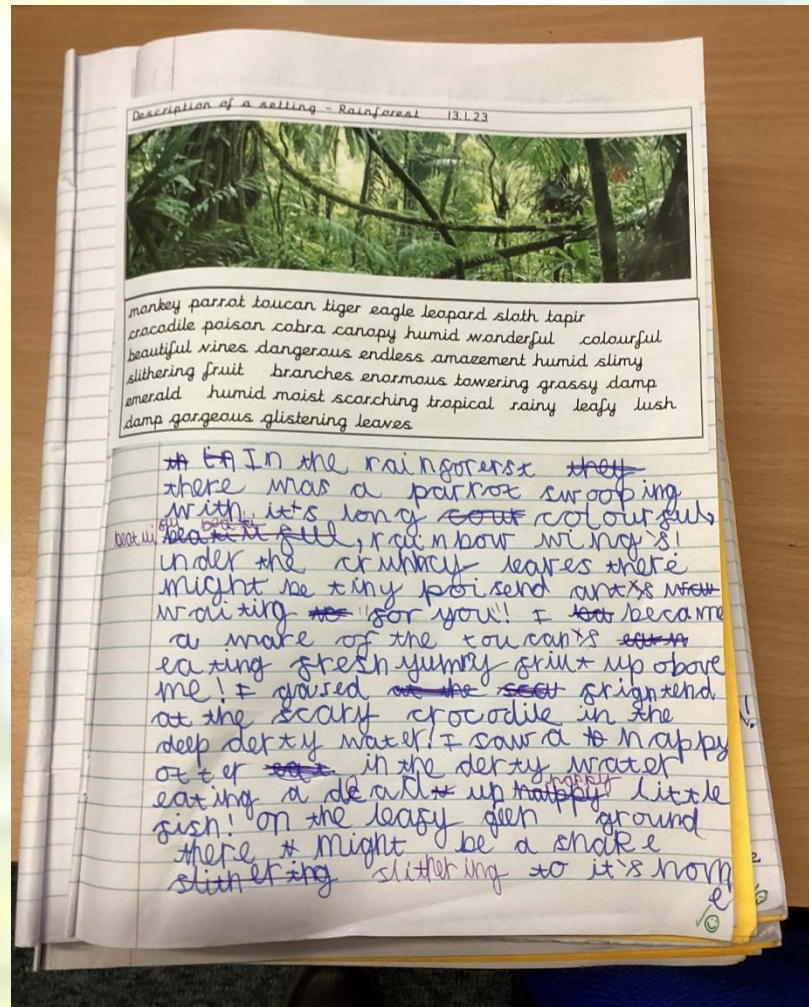 Description of a setting - Rainforest 13.1.23
monkey parrot toucan tiger eagle leopard sloth tapir
crocodile poison cobra canopy humid wonderful colourful
beautiful vines dangerous endless amazement humid slimy
slithering fruit branches enormous towering grassy damp
emerald humid moist scorching tropical rainy leafy lush
damp gorgeous glistening leaves
In the rainforerst they
there was a parrot swooping
with it's long colourful,
beatuiful, rainbow wing's!
under the crunhcy leaves there
might be tiny poisend ant's
waiting for you"! I became
a ware of the toucan's
eating fresh yumry friut up above
me! I gased frigntend
at the scary crocodile in the
deep derty water! I saw a happy
otter in the derty water
eating a dead up happy little
fish! on the leafy geen ground
there might be a snake
slithering slithering to it's hom
e